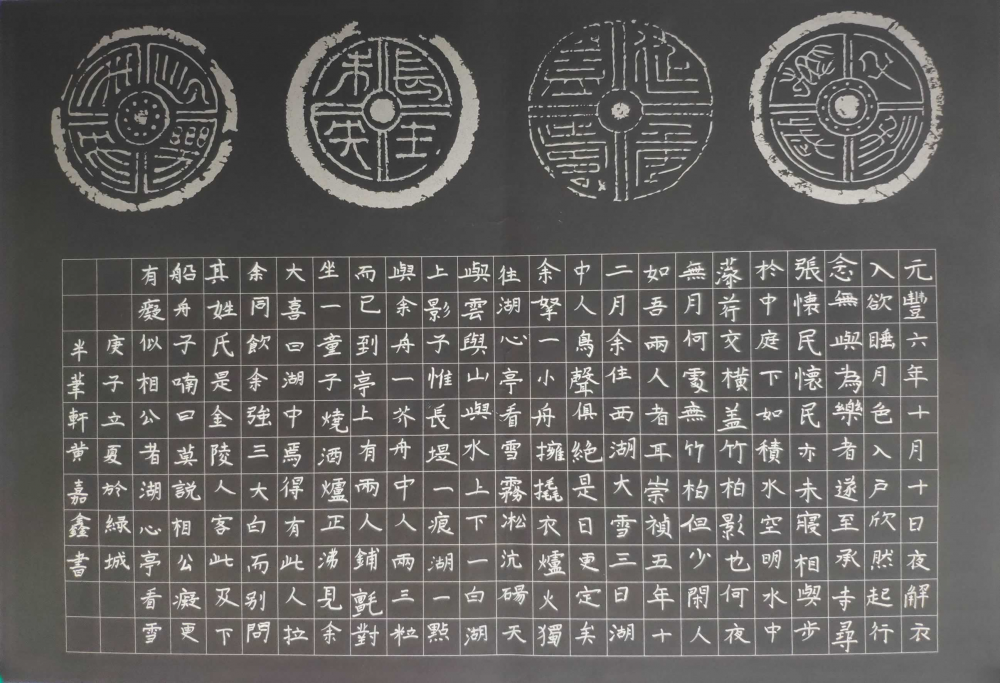 長生未央
元豐六年十月十日夜解衣
入欲睡月色入戶欣然起行
念無與為樂者遂至承寺尋
張懷民懷民亦未寢相與步
於中庭下如積水空明水中
藻荇交橫盖竹柏影也何夜
無月何處無竹柏但少閑人
如吾兩人者耳崇禎五年十
二月余住西湖大雪三日湖
中人鳥聲俱絕是日更定矣
余拏一小舟擁撬衣爐火獨
往湖心亭看雪霧凇沆碭天
與雲與山與水上下一白湖
上影子惟長堤一痕湖一點
與余舟一芥舟中人兩三粒
而已到亭上有兩人鋪氈對
坐一童子燒酒爐正沸見余
大喜曰湖中焉得有此人拉
余同飲余強三大白而別問
其姓氏是金陵人客此及下
船舟子喃曰莫說相公癡更
有癡似相公者湖心亭看雪
庚子立夏於綠城
半茟軒黃嘉鑫書